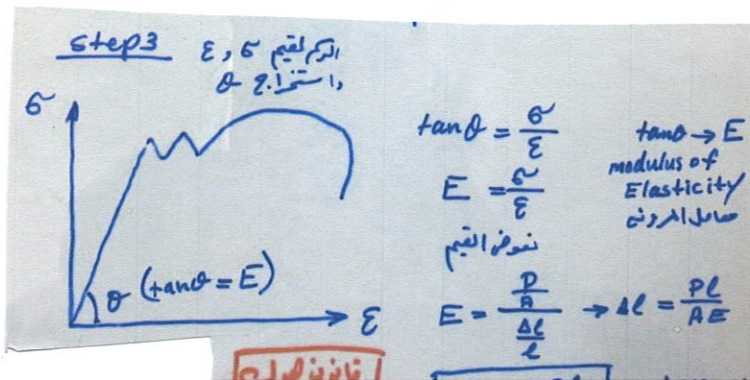 step3
الرسم لقيم σ , ε
واستخراج θ
σ
θ (tanθ = E)
ε
tanθ = σ/ε
E = σ/ε
نعوض القيم
E = (P/A)/(Δl/l) → Δl = Pl/AE
tanθ → E
modulus of
Elasticity
معامل المرونه